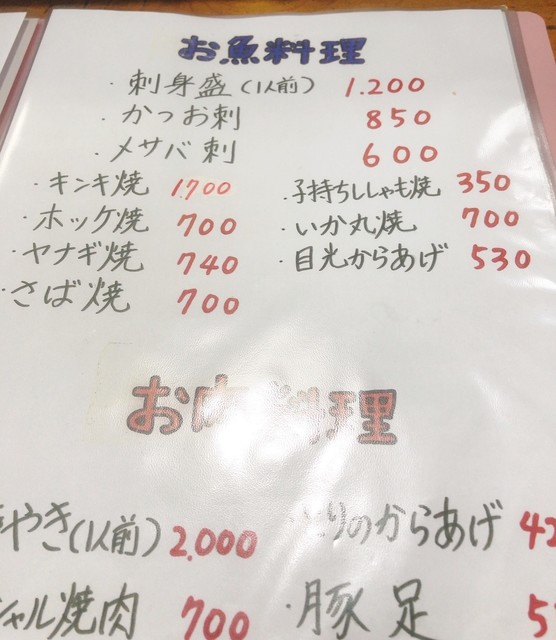 お魚料理
・刺身盛(1人前) 1.200
・かつお刺 850
・メサバ刺 600
・キンキ焼 1.700
・ホッケ焼 700
・ヤナギ焼 740
・さば焼 700
・子持ちししゃも焼 350
・いか丸焼 700
・目光からあげ 530
お肉料理
やき(1人前) 2.000
シャル焼肉 700
とりのからあげ
・豚足